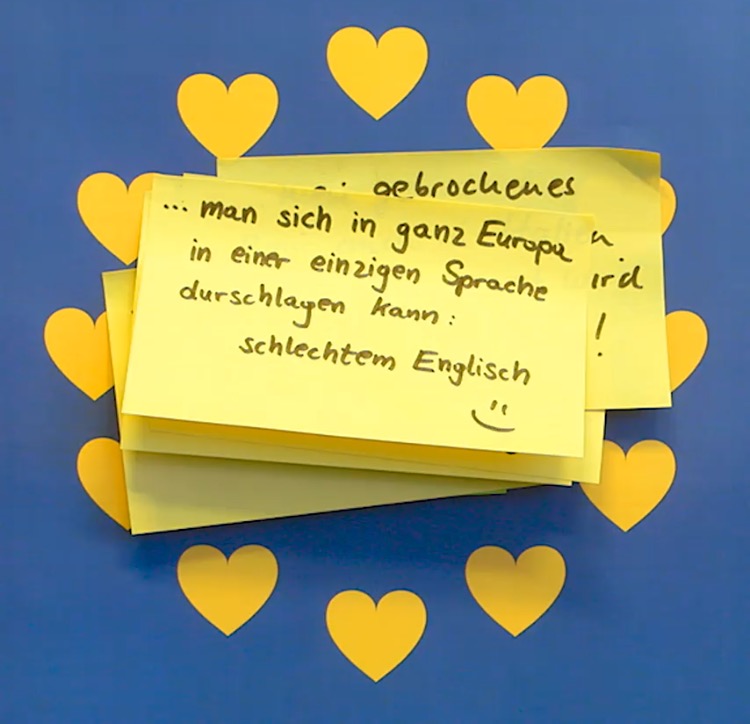 gebrochenes
... man sich in ganz Europa
in einer einzigen Sprache
durschlagen kann:
schlechtem Englisch
!